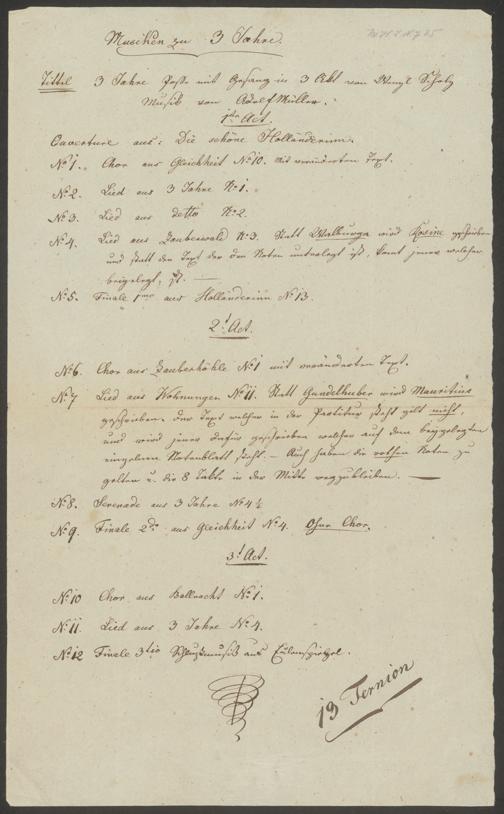 Musiken zu 3 Jahre.
Tittel 3 Jahre Posse mit Gesang in 3 Akt von Wenzl Scholz
Musik von Adolf Müller.
1ter Act.
Ouverture aus: Die schöne Holländerinn.
No 1. Chor aus Gleichheit No 10. mit verändertem Text.
No 2. Lied aus 3 Jahre No 1.
No 3. Lied aus detto No 2.
No 4. Lied aus Zauberwald No 3. Statt Walburga wird Rosine geschrieben
und statt den Text der den Noten unterlegt ist, komt jener welcher
beigelegt, ist. —
No 5. Finale 1mo aus Holländerinn No 13.
2t Act.
No 6. Chor aus Zauberhöhle No 1 mit verändertem Text.
No 7 Lied aus Wohnungen No 11. Statt Gundelhuber wird Mauritius
geschrieben. Der Text welcher in der Partitur steht gilt nicht,
und wird jener dafür geschrieben welcher auf dem beygelegten
einzelnen Notenblatt steht. — Auch haben die rothen Noten zu
gelten u. die 8 Takte in der Mitte wegzubleiben. —
No 8. Serenade aus 3 Jahre No 4½
No 9. Finale 2do aus Gleichheit No 4. Ohne Chor.
3t Act.
No 10 Chor aus Ballnacht No 1.
No 11. Lied aus 3 Jahre No 4.
No 12 Finale 3tio Schlußmusik aus Eulenspiegel.
19 Ternion